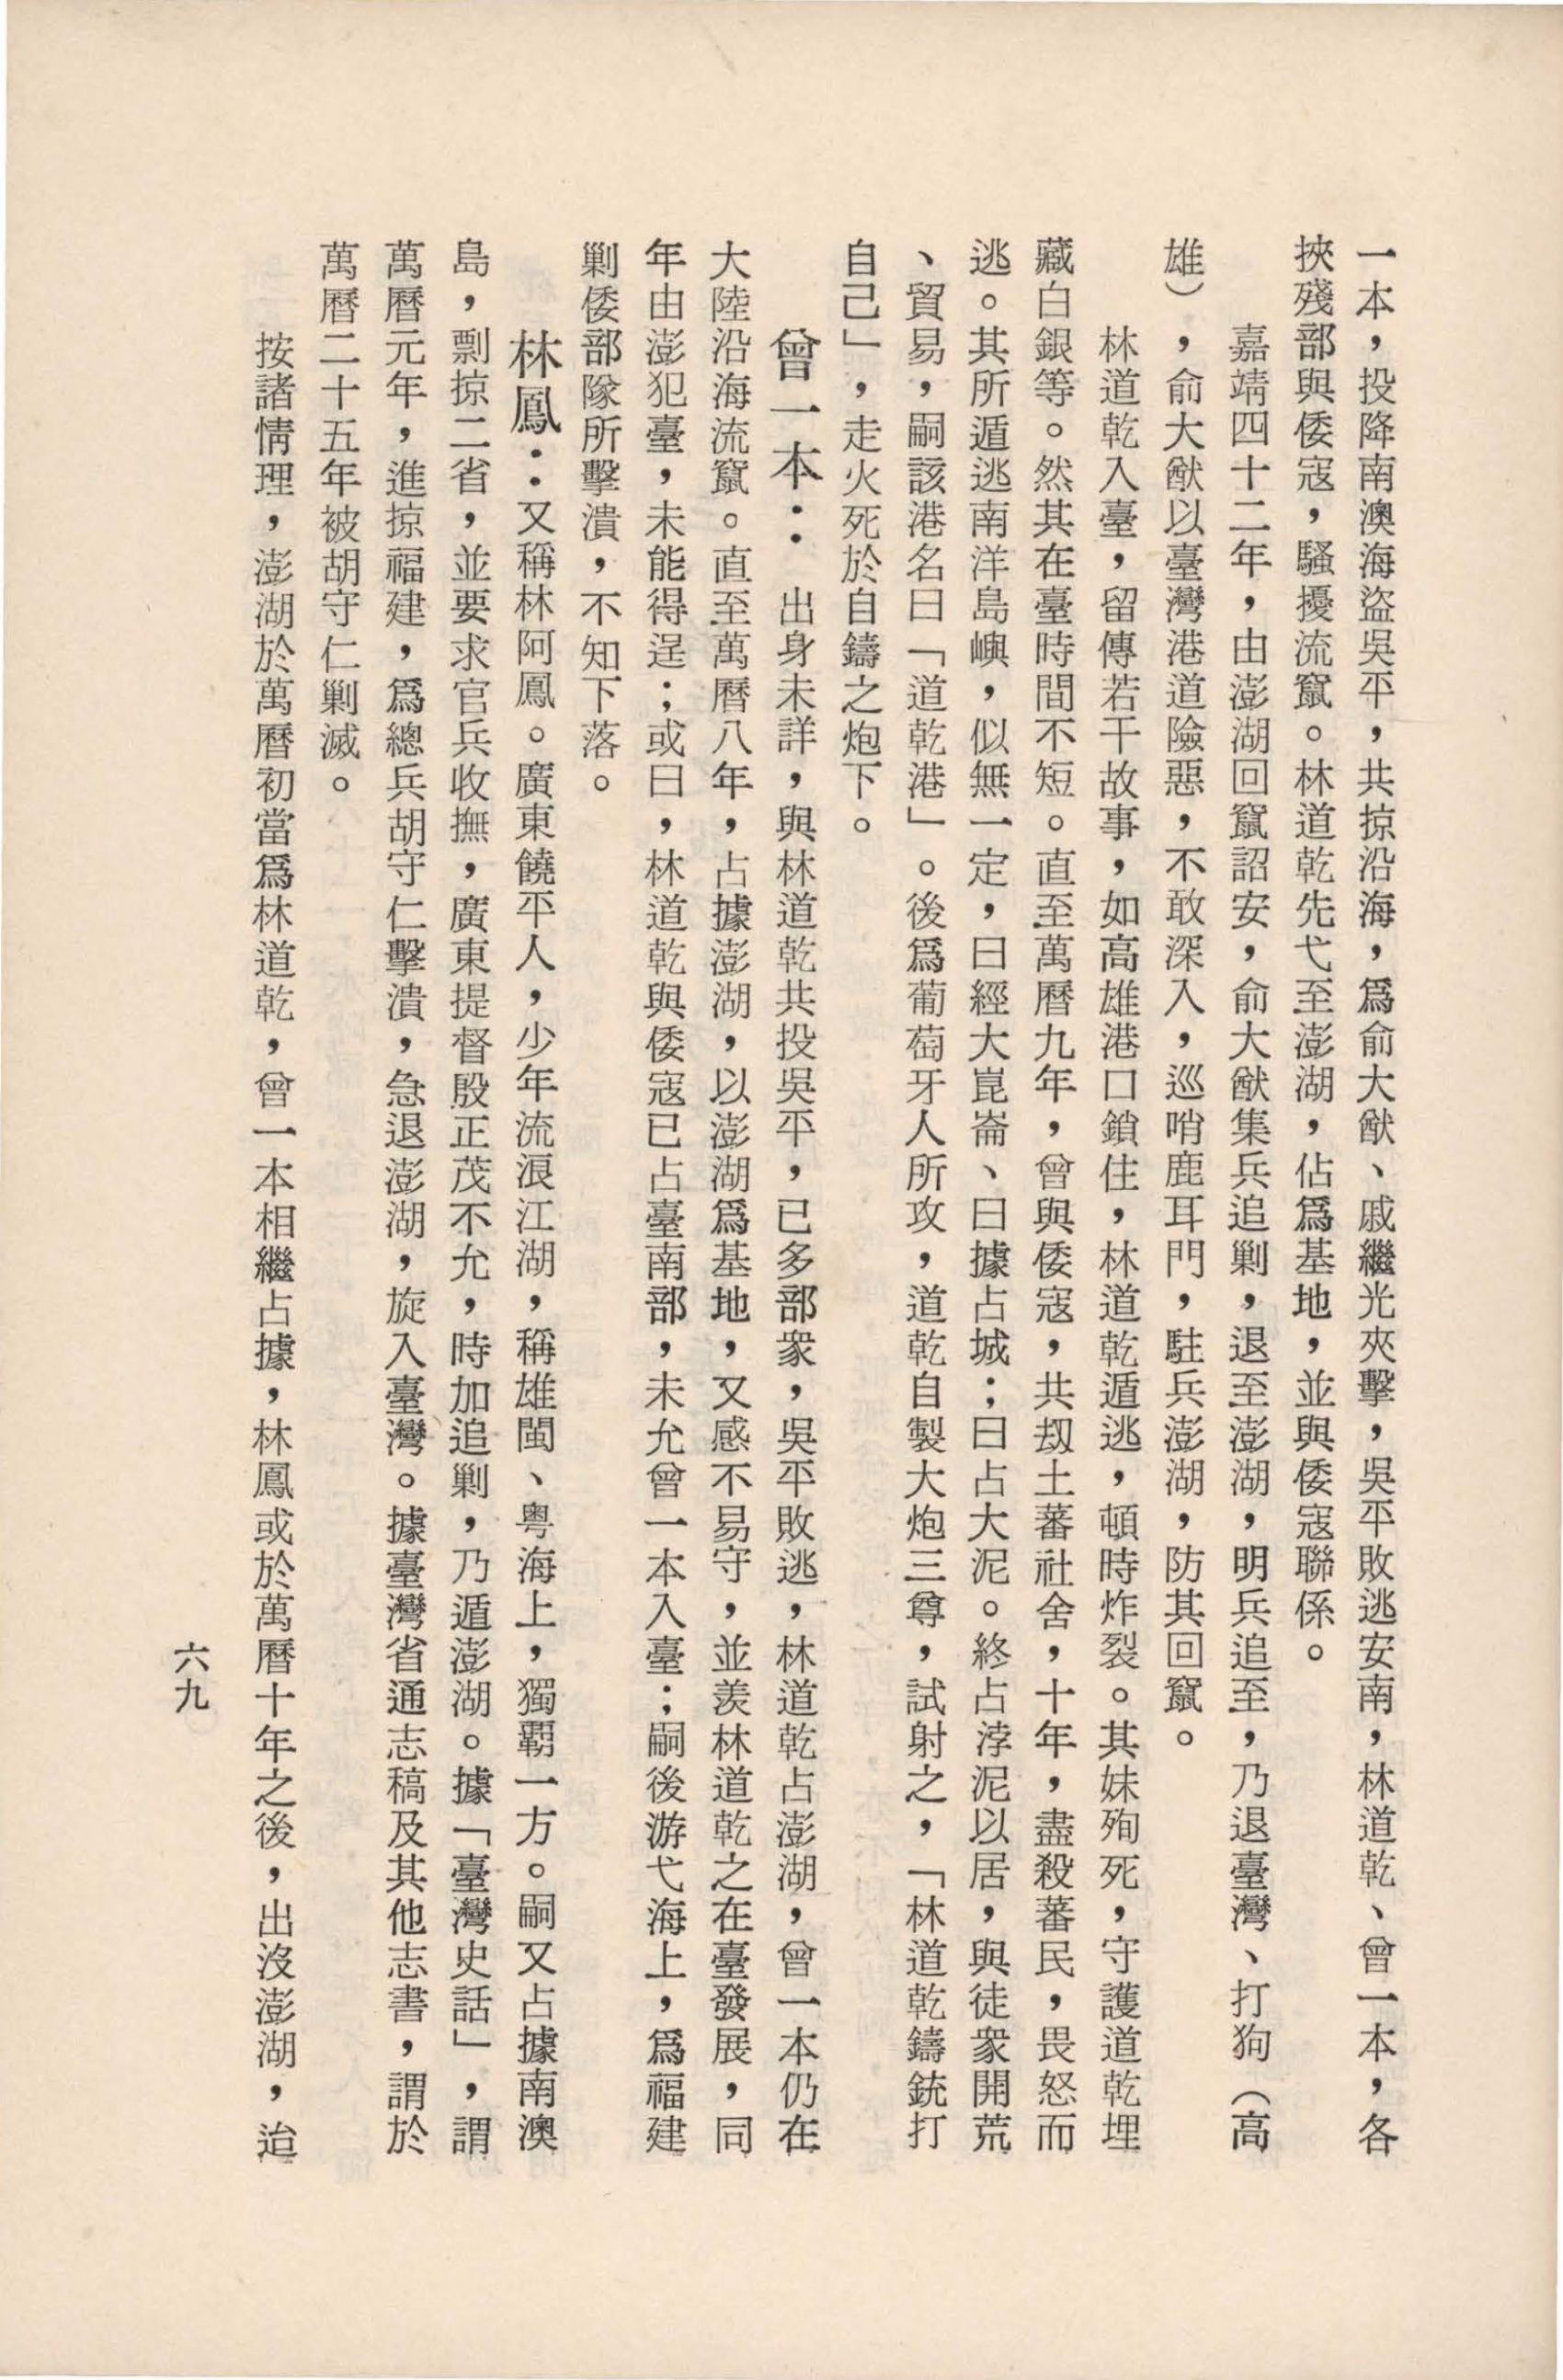 一本，投降南澳海盜吳平，共掠沿海，爲俞大猷、戚繼光夾擊，吳平敗逃安南，林道乾、曾一本，各
挾殘部與倭寇，騷擾流竄。林道乾先弋至澎湖，佔爲基地，並與倭寇聯係。
嘉靖四十二年，由澎湖回竄詔安，俞大猷集兵追剿，退至澎湖，明兵追至，乃退臺灣、打狗（高
雄），俞大猷以臺灣港道險惡，不敢深入，巡哨鹿耳門，駐兵澎湖，防其回竄。
林道乾入臺，留傳若干故事，如高雄港口鎖住，林道乾遁逃，頓時炸裂。其妹殉死，守護道乾埋
藏白銀等。然其在臺時間不短。直至萬曆九年，曾與倭寇，共刼土蕃社舍，十年，盡殺蕃民，畏怒而
逃。其所遁逃南洋島嶼，似無一定，曰經大崑崙、曰據占城；曰占大泥。終占浡泥以居，與徒衆開荒
、貿易，嗣該港名曰「道乾港」。後爲葡萄牙人所攻，道乾自製大炮三尊，試射之，「林道乾鑄銃打
自己」，走火死於自鑄之炮下。
曾一本：出身未詳，與林道乾共投吳平，已多部衆，吳平敗逃，林道乾占澎湖，曾一本仍在
大陸沿海流竄。直至萬曆八年，占據澎湖，以澎湖爲基地，又感不易守，並羨林道乾之在臺發展，同
年由澎犯臺，未能得逞；或曰，林道乾與倭寇已占臺南部，未允曾一本入臺；嗣後游弋海上，爲福建
剿倭部隊所擊潰，不知下落。
林鳳：又稱林阿鳳。廣東饒平人，少年流浪江湖，稱雄閩、粤海上，獨覇一方。嗣又占據南澳
島，剽掠二省，並要求官兵收撫，廣東提督殷正茂不允，時加追剿，乃遁澎湖。據「臺灣史話」，謂
萬曆元年，進掠福建，爲總兵胡守仁擊潰，急退澎湖，旋入臺灣。據臺灣省通志稿及其他志書，謂於
萬曆二十五年被胡守仁剿滅。
按諸情理，澎湖於萬曆初當爲林道乾，曾一本相繼占據，林鳳或於萬曆十年之後，出沒澎湖，迨
六九